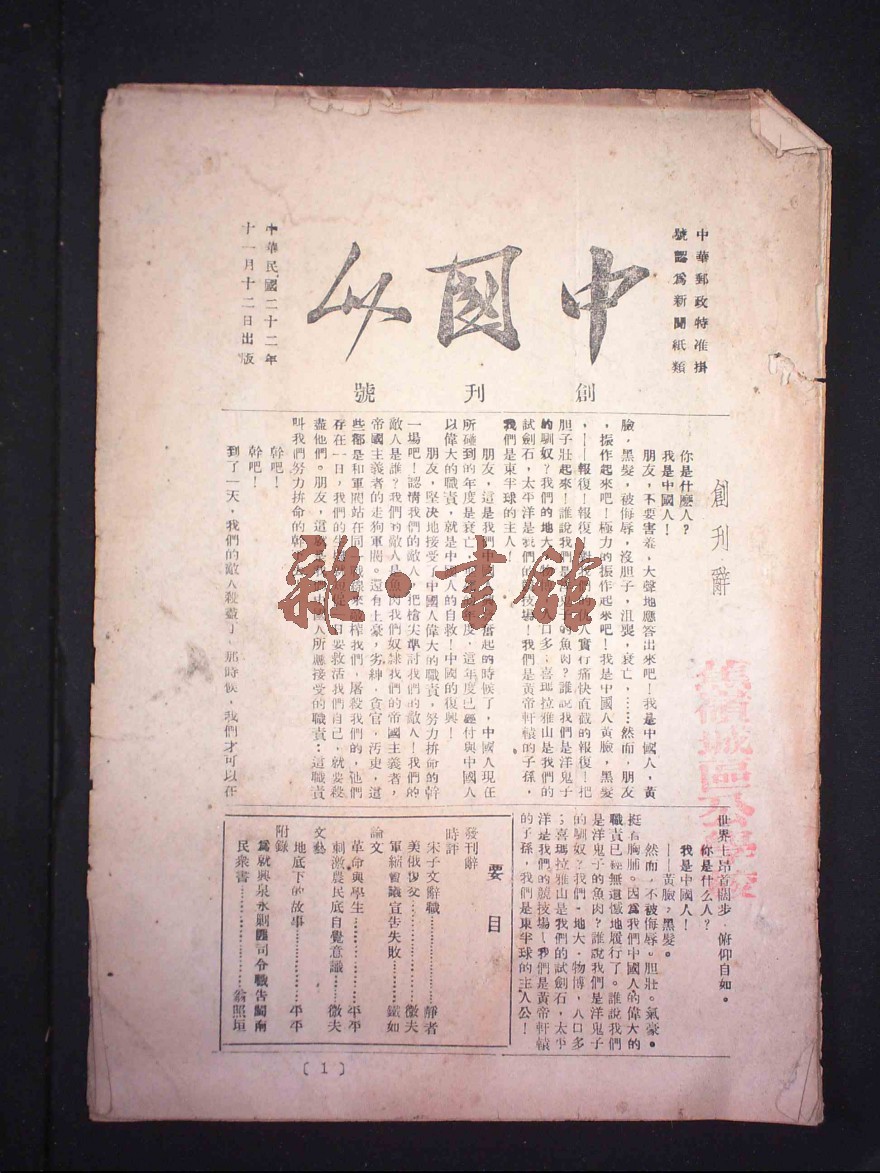 中華郵政特准掛
號認爲新聞紙類
中國人
創刊號
中華民國二十二年
十一月十二日出版
創刊辭
你是什麽人？
我是中國人！
朋友，不要害羞，大聲地應答出來吧！我是中國人，黃
臉，黑髮，被侮辱，沒胆子，沮喪，衰亡，……然而，朋友
，振作起來吧！極力的振作起來吧！我是中國人黃臉，黑髮
，——報復！報復！實行痛快直截的報復！把
胆子壯起來！誰說我們是的魚肉？誰說我們是洋鬼子
的馴奴？我們的地大口多；喜瑪拉雅山是我們的
試劍石，太平洋是我們的技場！我們是黃帝軒轅的子孫，
我們是東半球的主人！
朋友，這是我們中國奮起的時候了，中國人現在
所碰到的年度是衰亡年度，這年度已經付與中國人
以偉大的職責，就是中國人的自救！中國的復興！
朋友，堅決地接受了中國人偉大的職責，努力拚命的幹
一場吧！認清我們的敵人，把槍尖準對我們的敵人！我們的
敵人是誰？我們的敵人是魚肉我們奴隸我們的帝國主義者，
帝國主義者的走狗軍閥。還有土豪，劣紳，貪官，汚吏，這
些都是和軍閥站在同一戰線來榨我們，屠殺我們的，他們
存在一日，我們的日要救活我們自己，就要殺
盡他們。朋友，這國人所應接受的職責：這職責
叫我們努力拚命的幹
幹吧！
幹吧！
到了一天，我們的敵人殺盡了，那時候，我們才可以在
世界上昂首闊步，俯仰自如。
你是什么人？
我是中國人！
——黃臉，黑髮。
然而，不被侮辱。胆壯。氣豪。
挺有胸肺。因爲我們中國人的偉大的
職責已經無遺憾地履行了。誰說我們
是洋鬼子的魚肉？誰說我們是洋鬼子
的馴奴？我們，地大，物博，人口多
；喜瑪拉雅山是我們的試劍石，太平
洋是我們的競技場！我們是黃帝軒轅
的子孫，我們是東半球的主人公！
要目
發刊辭
時評
宋子文辭職……靜者
美俄復交……微夫
軍縮會議宣告失敗……鐵如
論文
革命與學生……平平
刺激農民底自覺意識……微夫
文藝
地底下的故事……平平
附錄
爲就興泉永剿匪司令職告閩南
民衆書……翁照垣
〔1〕
雜·書館